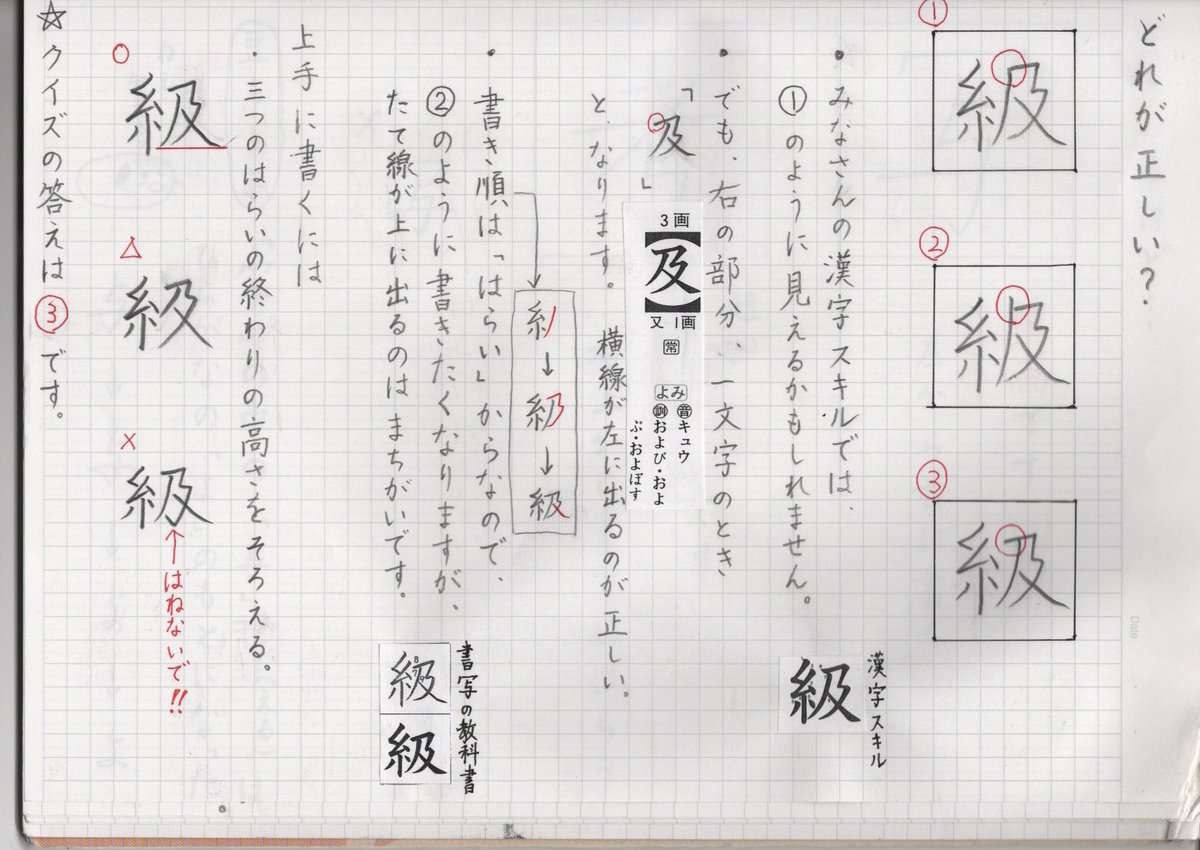 どれが正しい?
①
級
②
級
③
級
漢字スキル
級
・みなさんの漢字スキルでは、
①のように見えるかもしれません。
・でも、右の部分、一文字のとき
「及」
3画
【及】
又 1画
常
よみ
音キュウ
訓および・およ
ぶ・およぼす
と、なります。 横線が左に出るのが正しい。
・書き順は「はらい」からなので、
糸ノ→級→級
②のように書きたくなりますが、
たて線が上に出るのはまちがいです。
書写の教科書
8
級
級
上手に書くには
・三つのはらいの終わりの高さをそろえる。
○
級
△
級
×
級
↑はねないで!!
☆クイズの答えは③です。
Date